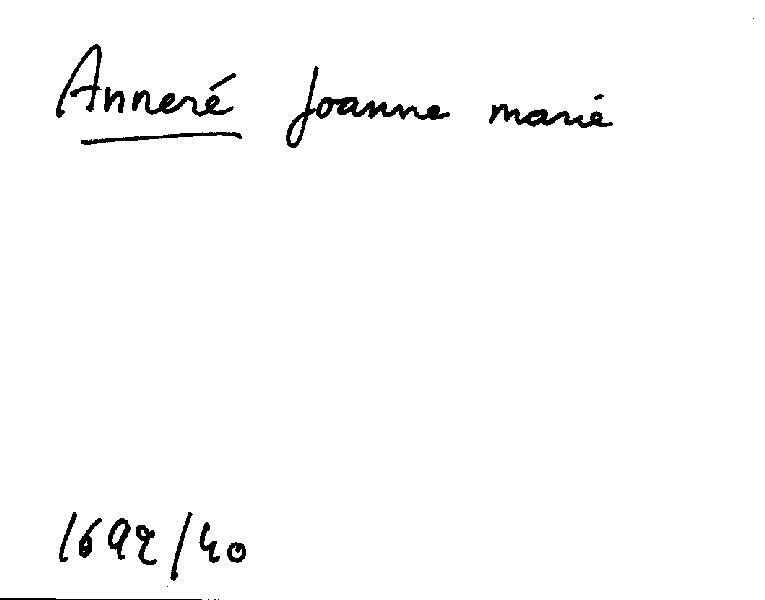 Anneré Joanne marie
1692/40